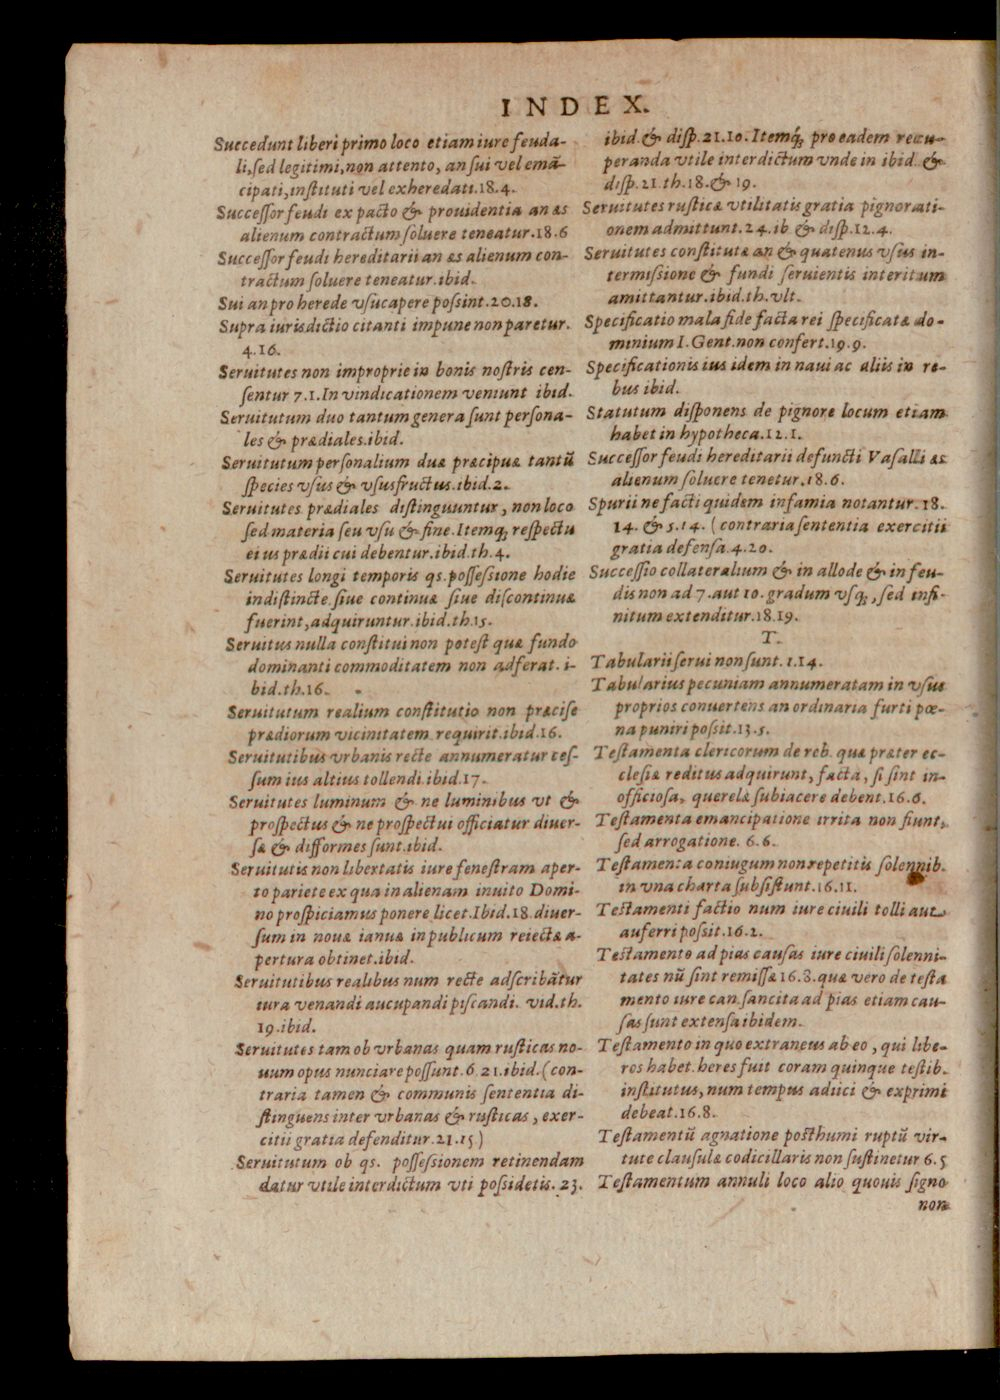 INDEX.
Succedunt liberi primo loco etiam iure feuda-
li, sed legitimi, non attento, an sui vel emā-
cipati, instituti vel exheredati. 18. 4.
Successor feudi ex pacto & prouidentia an æs
alienum contractum soluere teneatur. 18. 6
Successor feudi hereditarii an æs alienum con-
tractum soluere teneatur. ibid.
Sui an pro herede vsucapere possint. 20. 18.
Supra iurisdictio citanti impune non paretur.
4. 16.
Seruitutes non improprie in bonis nostris cen-
sentur 7. 1. In vindicationem veniunt ibid.
Seruitutum duo tantum genera sunt persona-
les & prædiales. ibid.
Seruitutum personalium duæ præcipuæ tantū
species vsus & vsusfructus. ibid. 2.
Seruitutes prædiales distinguuntur, non loco
sed materia seu vsu & fine. Itemq́, respectu
eius prædii cui debentur. ibid. th. 4.
Seruitutes longi temporis qs. possessione hodie
indistincte siue continuæ siue discontinuæ
fuerint, adquiruntur. ibid. th. 15.
Seruitus nulla constitui non potest quæ fundo
dominanti commoditatem non adferat. i-
bid. th. 16.
Seruitutum realium constitutio non præcise
prædiorum vicinitatem requirit. ibid. 16.
Seruitutibus vrbanis recte annumeratur ces-
sum ius altius tollendi. ibid. 17.
Seruitutes luminum & ne luminibus vt &
prospectus & ne prospectui officiatur diuer-
sæ & difformes sunt. ibid.
Seruitutis non libertatis iure fenestram aper-
to pariete ex qua in alienam inuito Domi-
no prospiciamus ponere licet. Ibid. 18. diuer-
sum in nouæ ianuæ in publicum reiectæ a-
pertura obtinet. ibid.
Seruitutibus realibus num recte adscribātur
iura venandi aucupandi piscandi. vid. th.
19. ibid.
Seruitutes tam ob vrbanas quam rusticas no-
uum opus nunciare possunt. 6. 21. ibid. (con-
traria tamen & communis sententia di-
stinguens inter vrbanas & rusticas, exer-
citii gratia defenditur. 21. 15)
Seruitutum ob qs. possessionem retinendam
datur vtile interdictum vti possidetis. 23.
ibid. & disp. 21. 10. Itemq́, pro eadem recu-
peranda vtile interdictum vnde in ibid. &
disp. 21. th. 18. & 19.
Seruitutes rusticæ vtilitatis gratia pignorati-
onem admittunt. 24. ib & disp. 12. 4.
Seruitutes constitutæ an & quatenus vsus in-
termissione & fundi seruientis interitum
amittantur. ibid. th. vlt.
Specificatio mala fide facta rei specificatæ do-
minium I. Gent. non confert. 19. 9.
Specificationis ius idem in naui ac aliis in re-
bus ibid.
Statutum disponens de pignore locum etiam
habet in hypotheca. 12. 1.
Successor feudi hereditarii defuncti Vasalli æs
alienum soluere tenetur. 18. 6.
Spurii ne facti quidem infamia notantur. 18.
14. & 5. 14. (contraria sententia exercitii
gratia defensa. 4. 20.
Successio collateralium & in allode & in feu-
dis non ad 7. aut 10. gradum vsq́, sed infi-
nitum extenditur. 18. 19.
T.
Tabularii serui non sunt. 1. 14.
Tabularius pecuniam annumeratam in vsus
proprios conuertens an ordinaria furti pœ-
na puniri possit. 13. 5.
Testamenta clericorum de reb. quæ præter ec-
clesiæ reditus adquirunt, facta, si sint in-
officiosa, querelæ subiacere debent. 16. 6.
Testamenta emancipatione irrita non fiunt,
sed arrogatione. 6. 6.
Testamenta coniugum non repetitis solennib.
in vna charta subsistunt. 16. 11.
Testamenti factio num iure ciuili tolli aut
auferri possit. 16. 2.
Testamento ad pias causas iure ciuili solenni-
tates nū sint remissæ 16. 3. quæ vero de testa
mento iure can. sancita ad pias etiam cau-
sas sunt extensa ibidem.
Testamento in quo extraneus ab eo, qui libe-
ros habet. heres fuit coram quinque testib.
institutus, num tempus adiici & exprimi
debeat. 16. 8.
Testamentū agnatione posthumi ruptū vir-
tute clausulæ codicillaris non sustinetur 6. 5
Testamentum annuli loco alio quouis signo
non